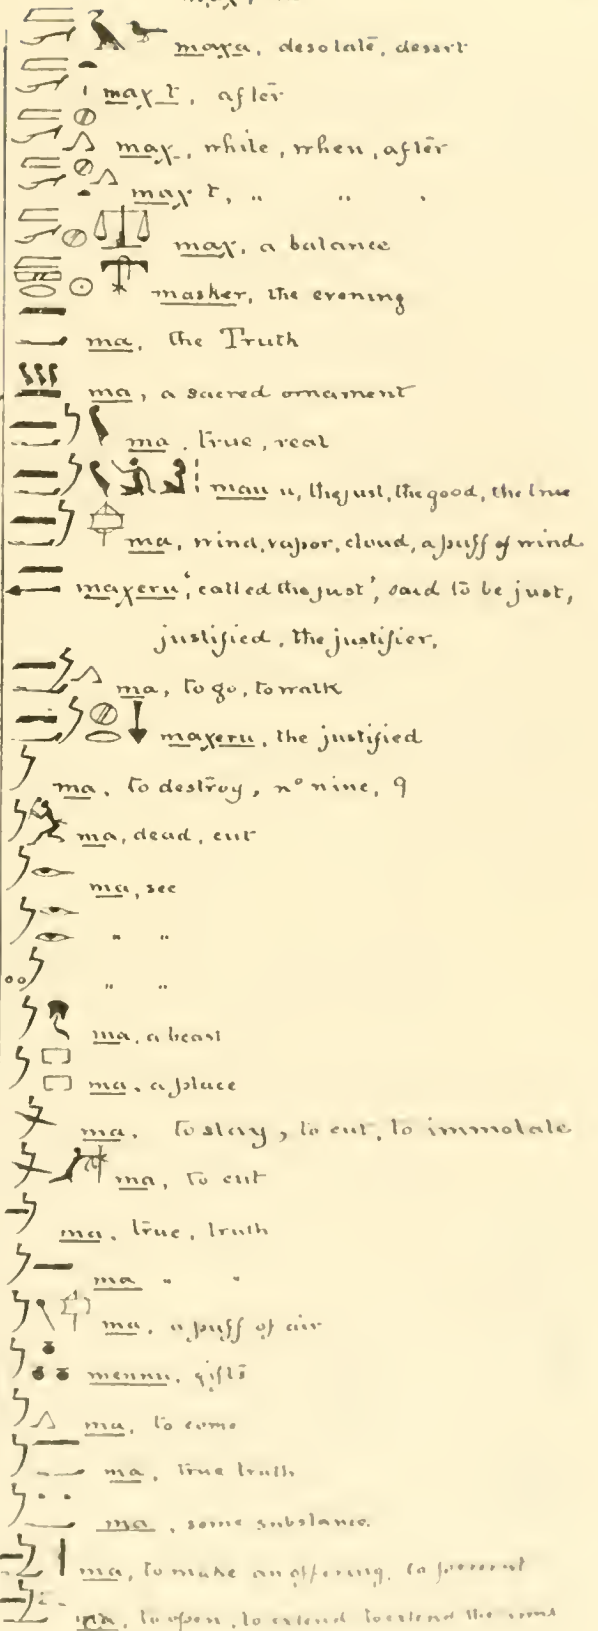 maχa, desolate, desert
maχ t, after
maχ, while, when, after
maχ t, " " "
maχ, a balance
masker, the evening
ma, the Truth
ma, a sacred ornament
ma, true, real
mau u, the just, the good, the true
ma, wind, vapor, cloud, a puff of wind
maχeru, 'called the just', said to be just,
justified, the justifier,
ma, to go, to walk
maχeru, the justified
ma, to destroy, nº nine, 9
ma, dead, cut
ma, see
" "
" "
ma, a beast
ma, a place
ma, to slay, to cut, to immolate
ma, to cut
ma, true, truth
ma " "
ma, a puff of air
mennu, gifts
ma, to come
ma, true truth
ma, some substance.
ma, to make an offering, to present
ma, to open, to extend to extend the arms